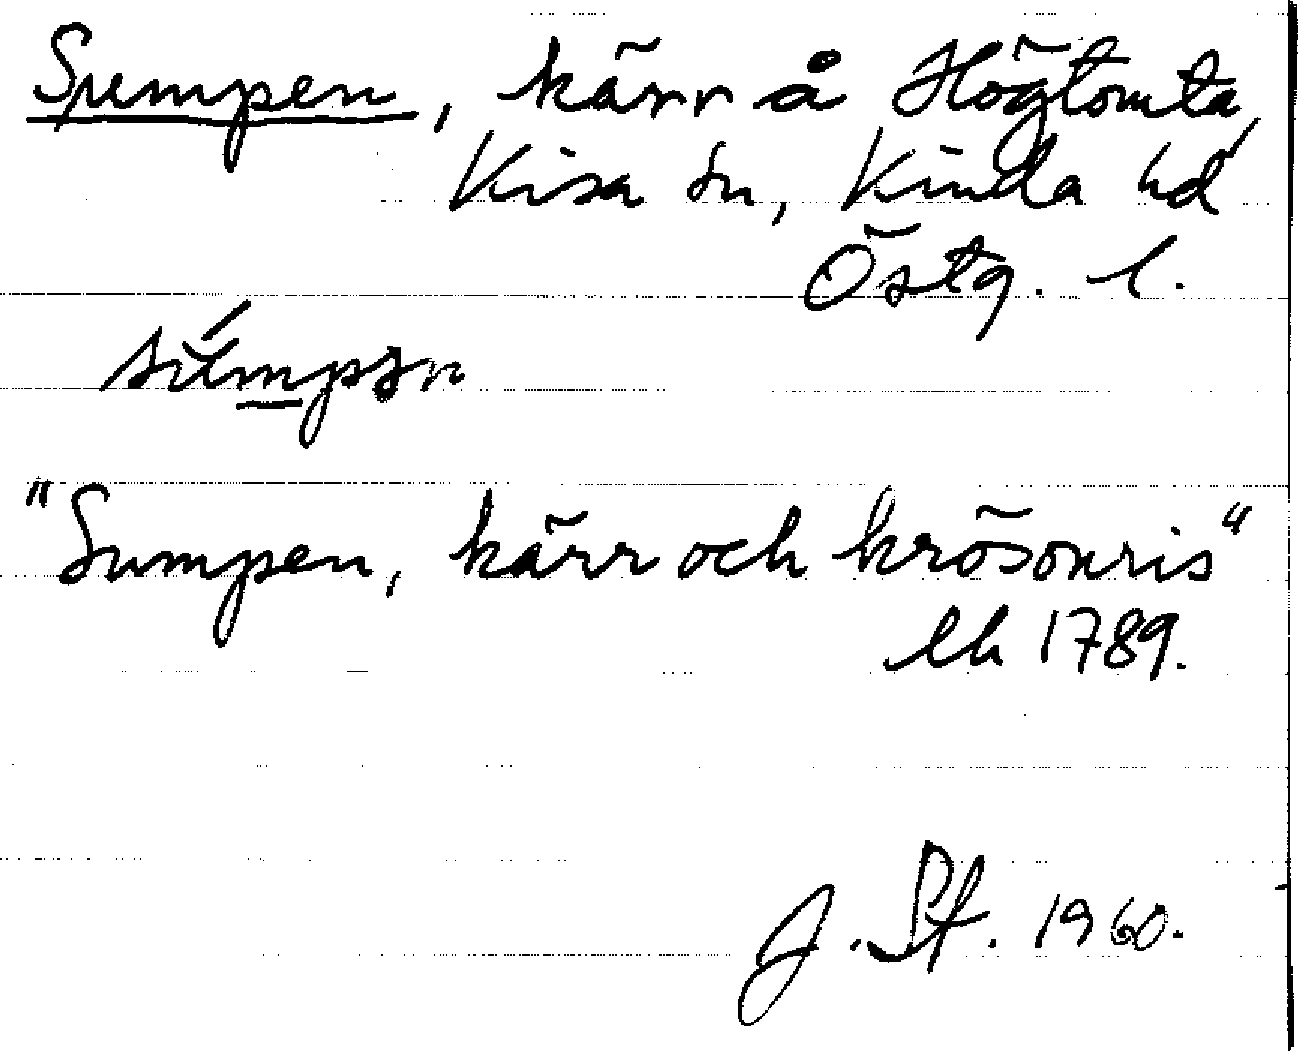 Sumpen, kärr å Högtomta,
Kisa sn, Kinda hd
Östg. l.
"Sumpen, kärr och krösonris"
lh 1789.
J. St. 1960.